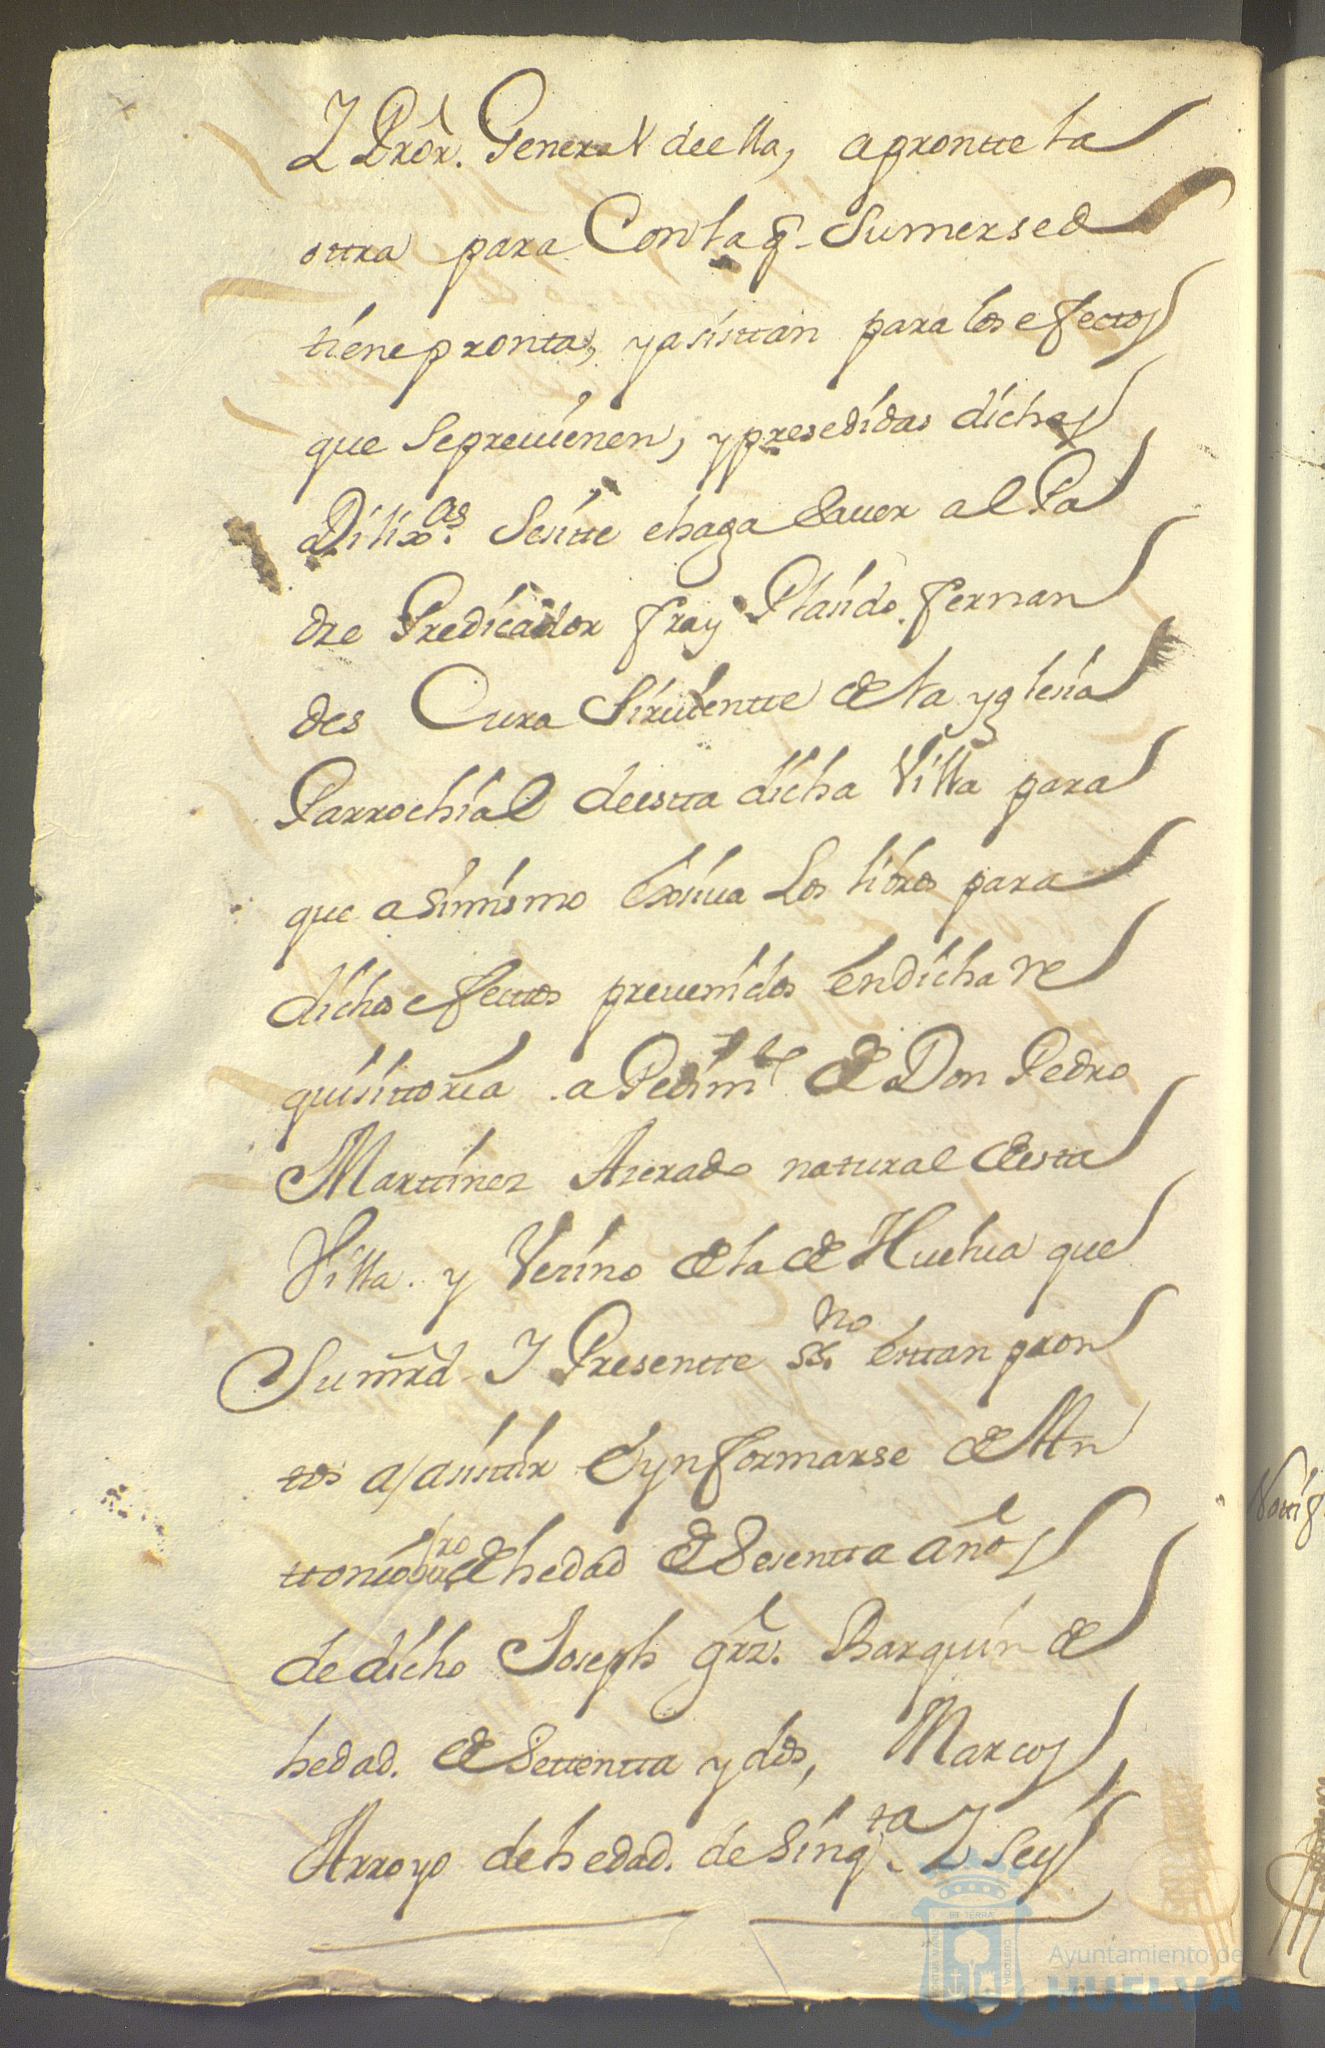 Y Pror. General deella, aprontte la
ottra para Con la q. Sumersed
tiene pronta, y asisttan para los efectos
que Se preuienen, y presedidas dichas
Dilixas. Se sitte e haga sauer al Pa
dre Predicador fray Plasido fernan
des Cura Siruientte de la yglesia
Parrochial deestta dicha Villa para
que asimismo Exsiua Los libros para
dichos efecttos preuenidos en dicha re
quisittoria a Pedimto. de Don Pedro
Marttinez Azerado natural de esta
Villa. y Vezino de la de Huelua que
Su mrd Y Presentte ssno. esttan pron
tos a asisttir e ynformarse de An
ttonio de hedad de Sesentta años
de dicho Joseph grz. Barquin de
hedad. de Settentta y dos, Marcos
Arroyo de hedad. de Sinqta. Y Seys
Ayuntamiento de
HUELVA